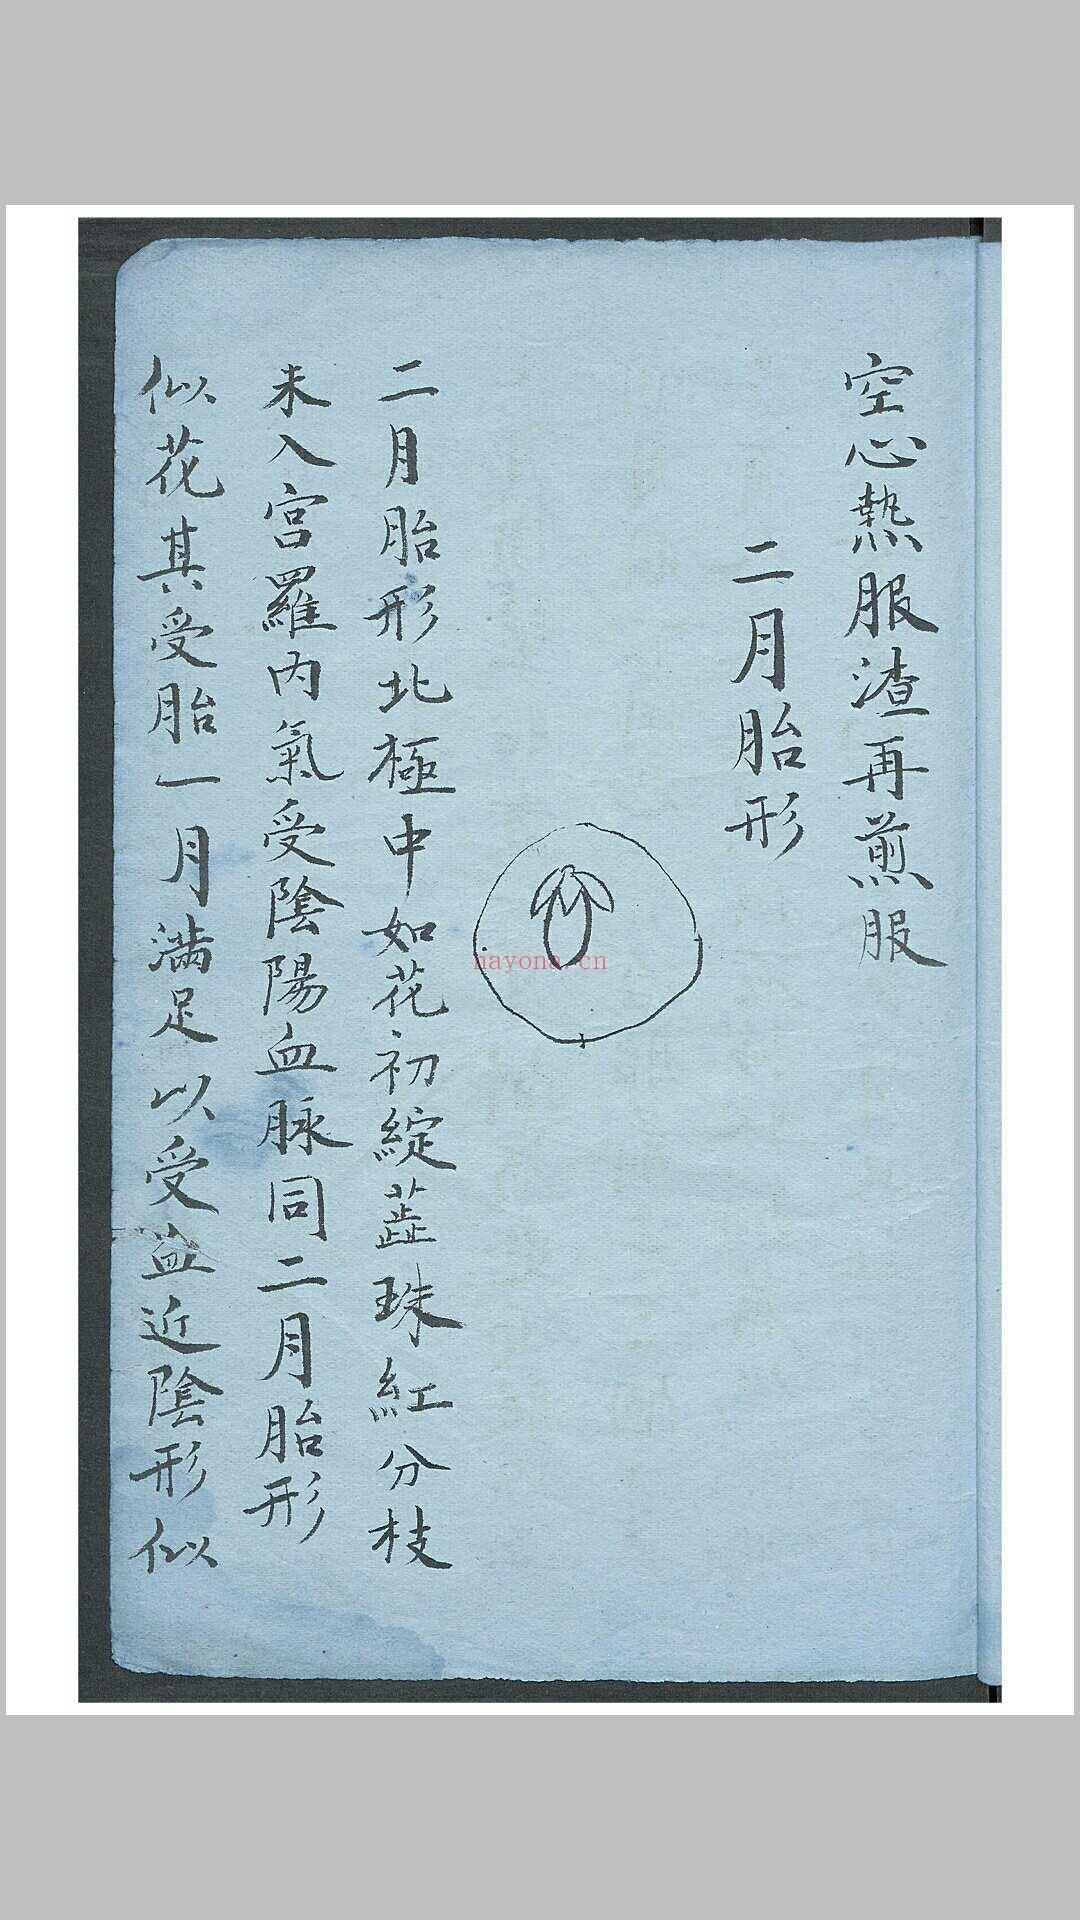 空心热服渣再煎服
二月胎形
二月胎形北極中如花初綻蕋珠紅分枝
未入宫羅內氣受陰陽血脉同二月胎形
似花其受胎一月满足以受血近陰形似
nayona.cn